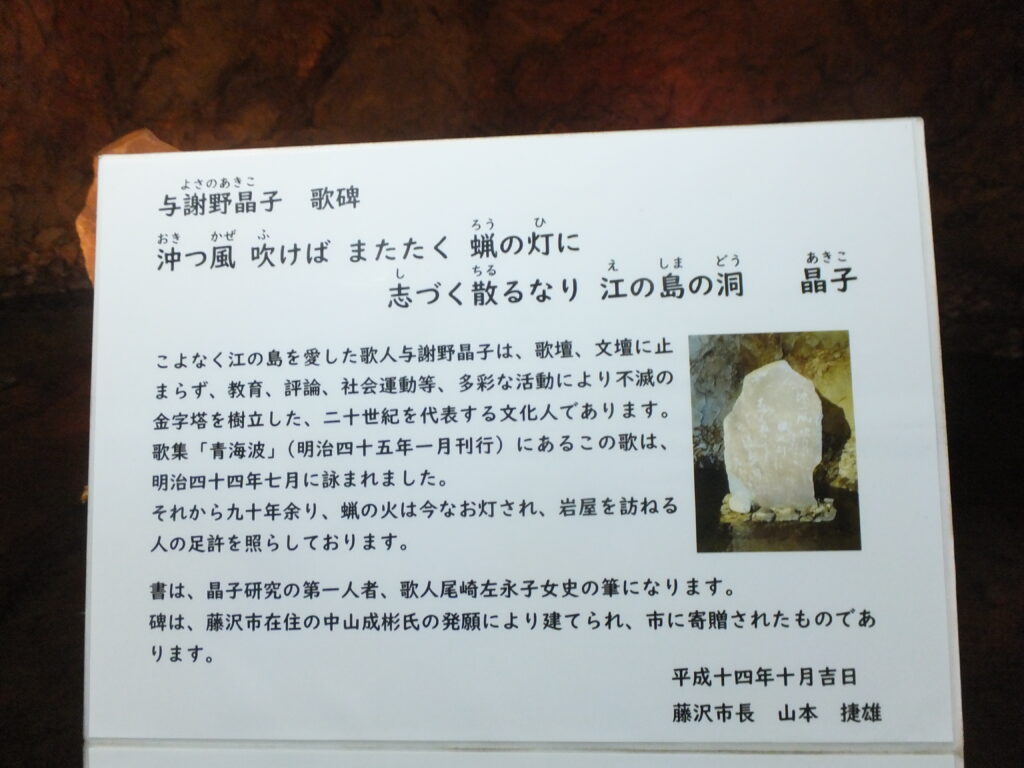 よさのあきこ
与謝野晶子 歌碑
おき かぜ ふ ろう ひ
沖つ風 吹けば またたく 蝋の灯に
し ちる え しま どう あきこ
志づく散るなり 江の島の洞 晶子
こよなく江の島を愛した歌人与謝野晶子は、歌壇、文壇に止
まらず、教育、評論、社会運動等、多彩な活動により不滅の
金字塔を樹立した、二十世紀を代表する文化人であります。
歌集「青海波」（明治四十五年一月刊行）にあるこの歌は、
明治四十四年七月に詠まれました。
それから九十年余り、蝋の火は今なお灯され、岩屋を訪ねる
人の足許を照らしております。
書は、晶子研究の第一人者、歌人尾崎左永子女史の筆になります。
碑は、藤沢市在住の中山成彬氏の発願により建てられ、市に寄贈されたものであ
ります。
平成十四年十月吉日
藤沢市長 山本 捷雄